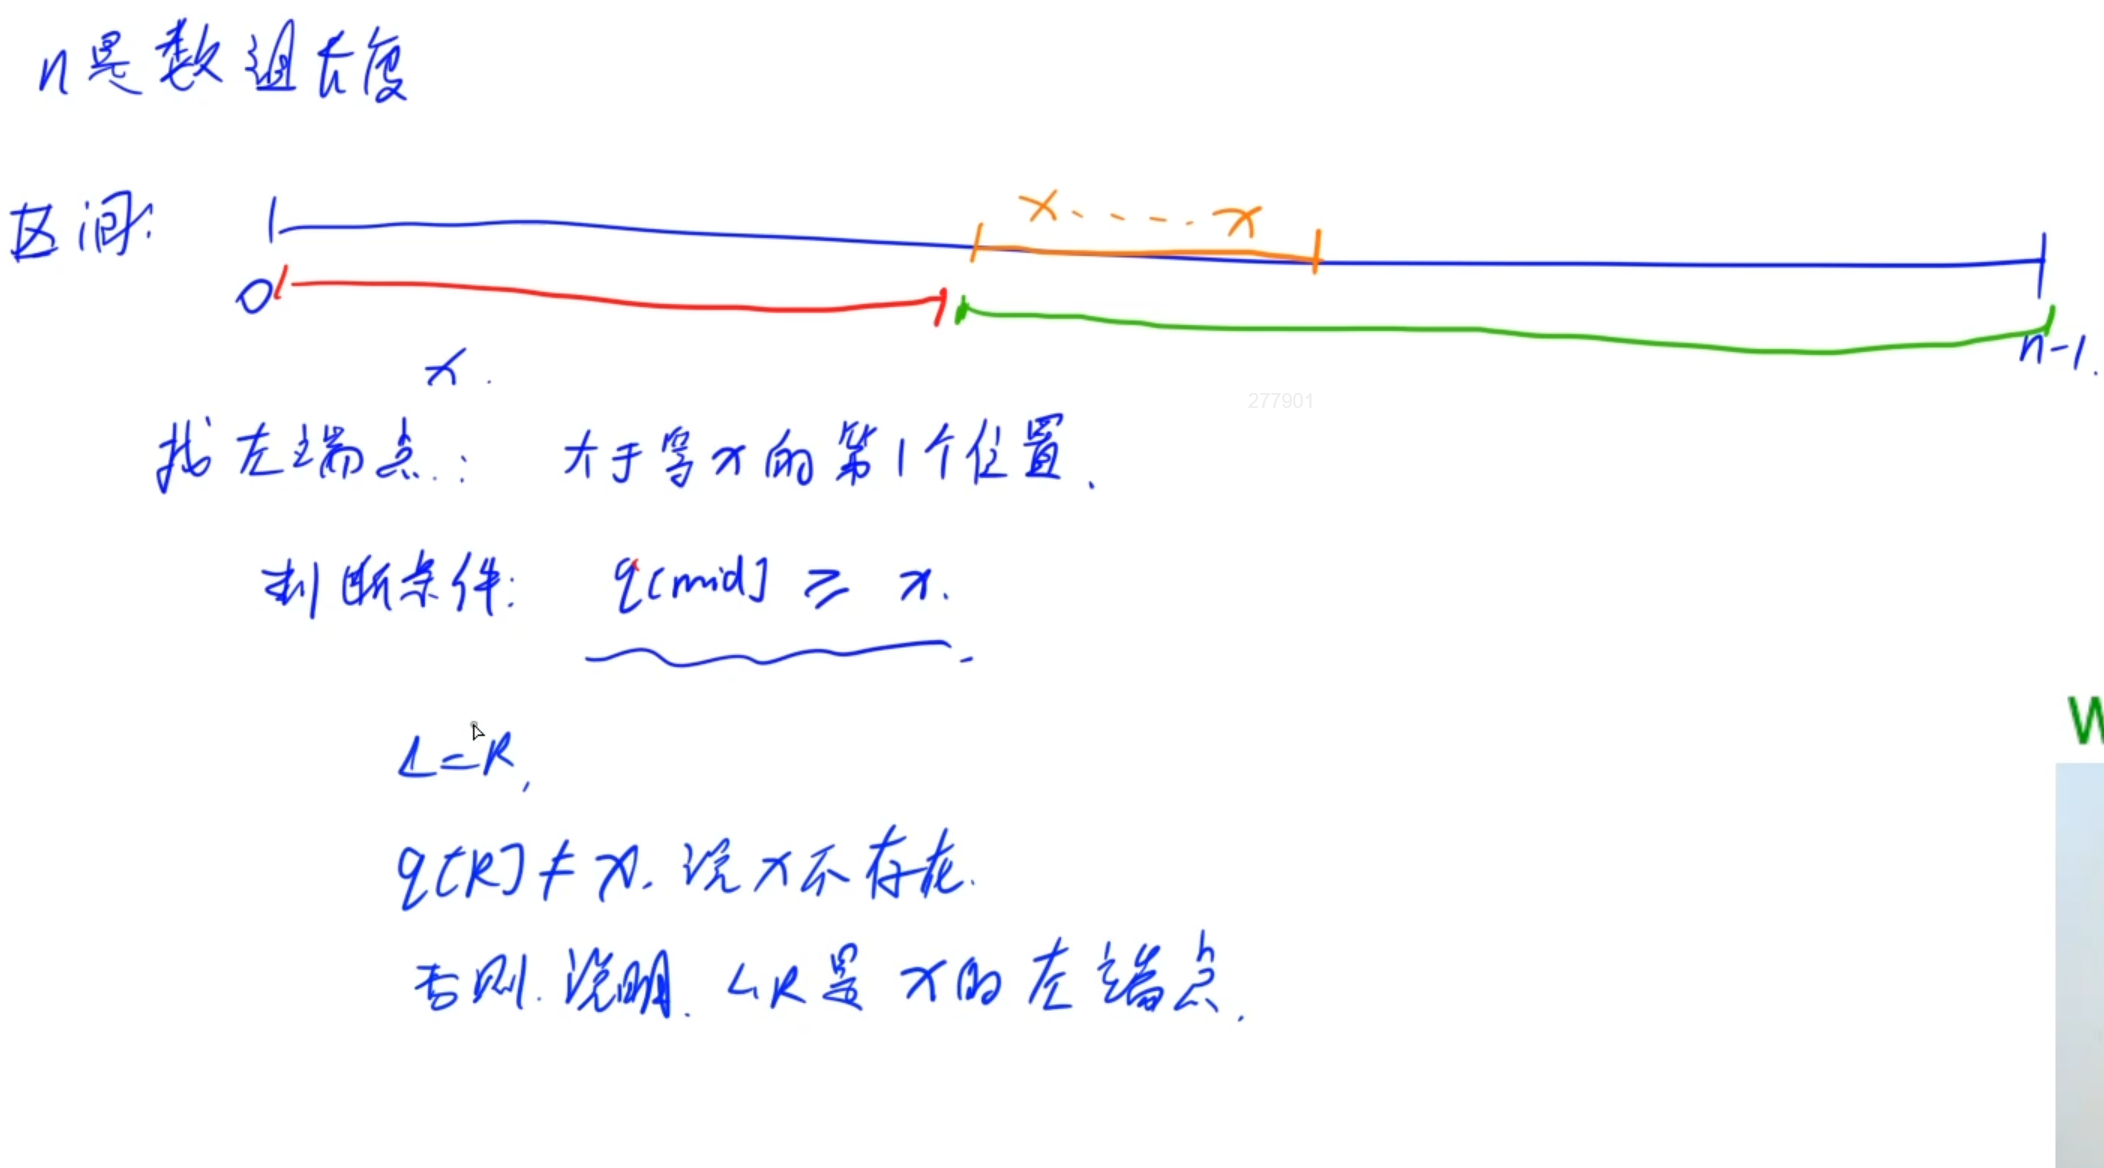 n是数组长度
区间:
x----x
0
n-1.
x.
找左端点: 大于等x的第1个位置.
277901
判断条件: q[mid] ≥ x.
L=R,
q[R]≠x. 说x不存在.
否则.说明. LR是x的左端点.
W